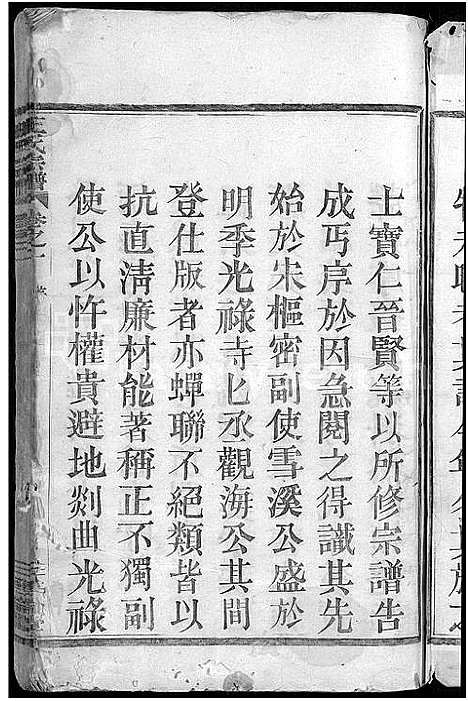 士寶仁晉賢等以所修宗譜告
成丐序於因急閱之得識其先
始於宋樞密副使雪溪公盛於
明季光祿寺匕丞觀海公其間
登仕版者亦蟬聯不絕類皆以
抗直淸廉材能著稱正不獨副
使公以忤權貴避地剡曲光祿
王氏宗譜